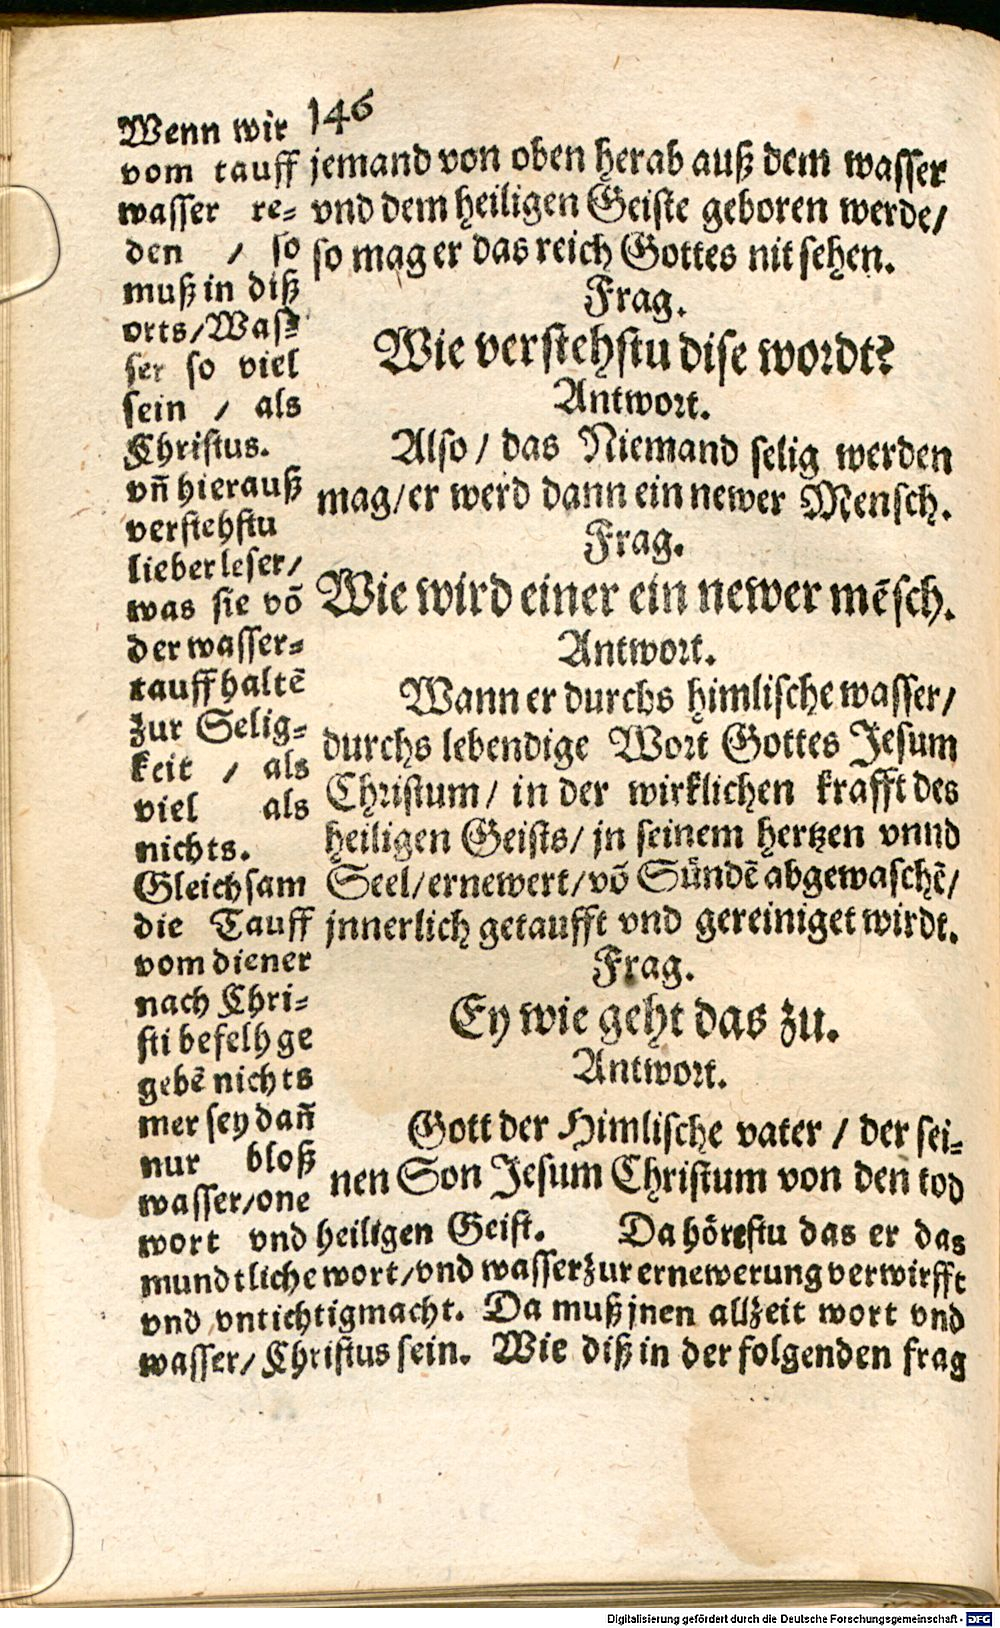 146
jemand von oben herab auß dem wasser
vnd dem heiligen Geiste geboren werde/
so mag er das reich Gottes nit sehen.
Frag.
Wie verstehstu dise wordt?
Antwort.
Also / das Niemand selig werden
mag/er werd dann ein newer Mensch.
Frag.
Wie wird einer ein newer mẽsch.
Antwort.
Wann er durchs himlische wasser/
durchs lebendige Wort Gottes Jesum
Christum/ in der wirklichen krafft des
heiligen Geists/ jn seinem hertzen vnnd
Seel/ernewert/võ Sündẽ abgewaschẽ/
jnnerlich getaufft vnd gereiniget wirdt.
Frag.
Ey wie geht das zu.
Antwort.
Gott der Himlische vater / der sei-
nen Son Jesum Christum von den tod
Wenn wir
vom tauff
wasser re-
den / so
muß in diß
orts/Was-
ser so viel
sein / als
Christus.
vñ hierauß
verstehstu
lieber leser/
was sie võ
der wasser-
tauff haltẽ
zur Selig-
keit / als
viel als
nichts.
Gleichsam
die Tauff
vom diener
nach Chri-
sti befelh ge
gebẽ nichts
mer sey dañ
nur bloß
wasser/one
wort vnd heiligen Geist. Da hörestu das er das
mundtliche wort/vnd wasser zur ernewerung verwirfft
vnd vntichtig macht. Da muß jnen allzeit wort vnd
wasser/ Christus sein. Wie diß in der folgenden frag
Digitalisierung gefördert durch die Deutsche Forschungsgemeinschaft - DFG